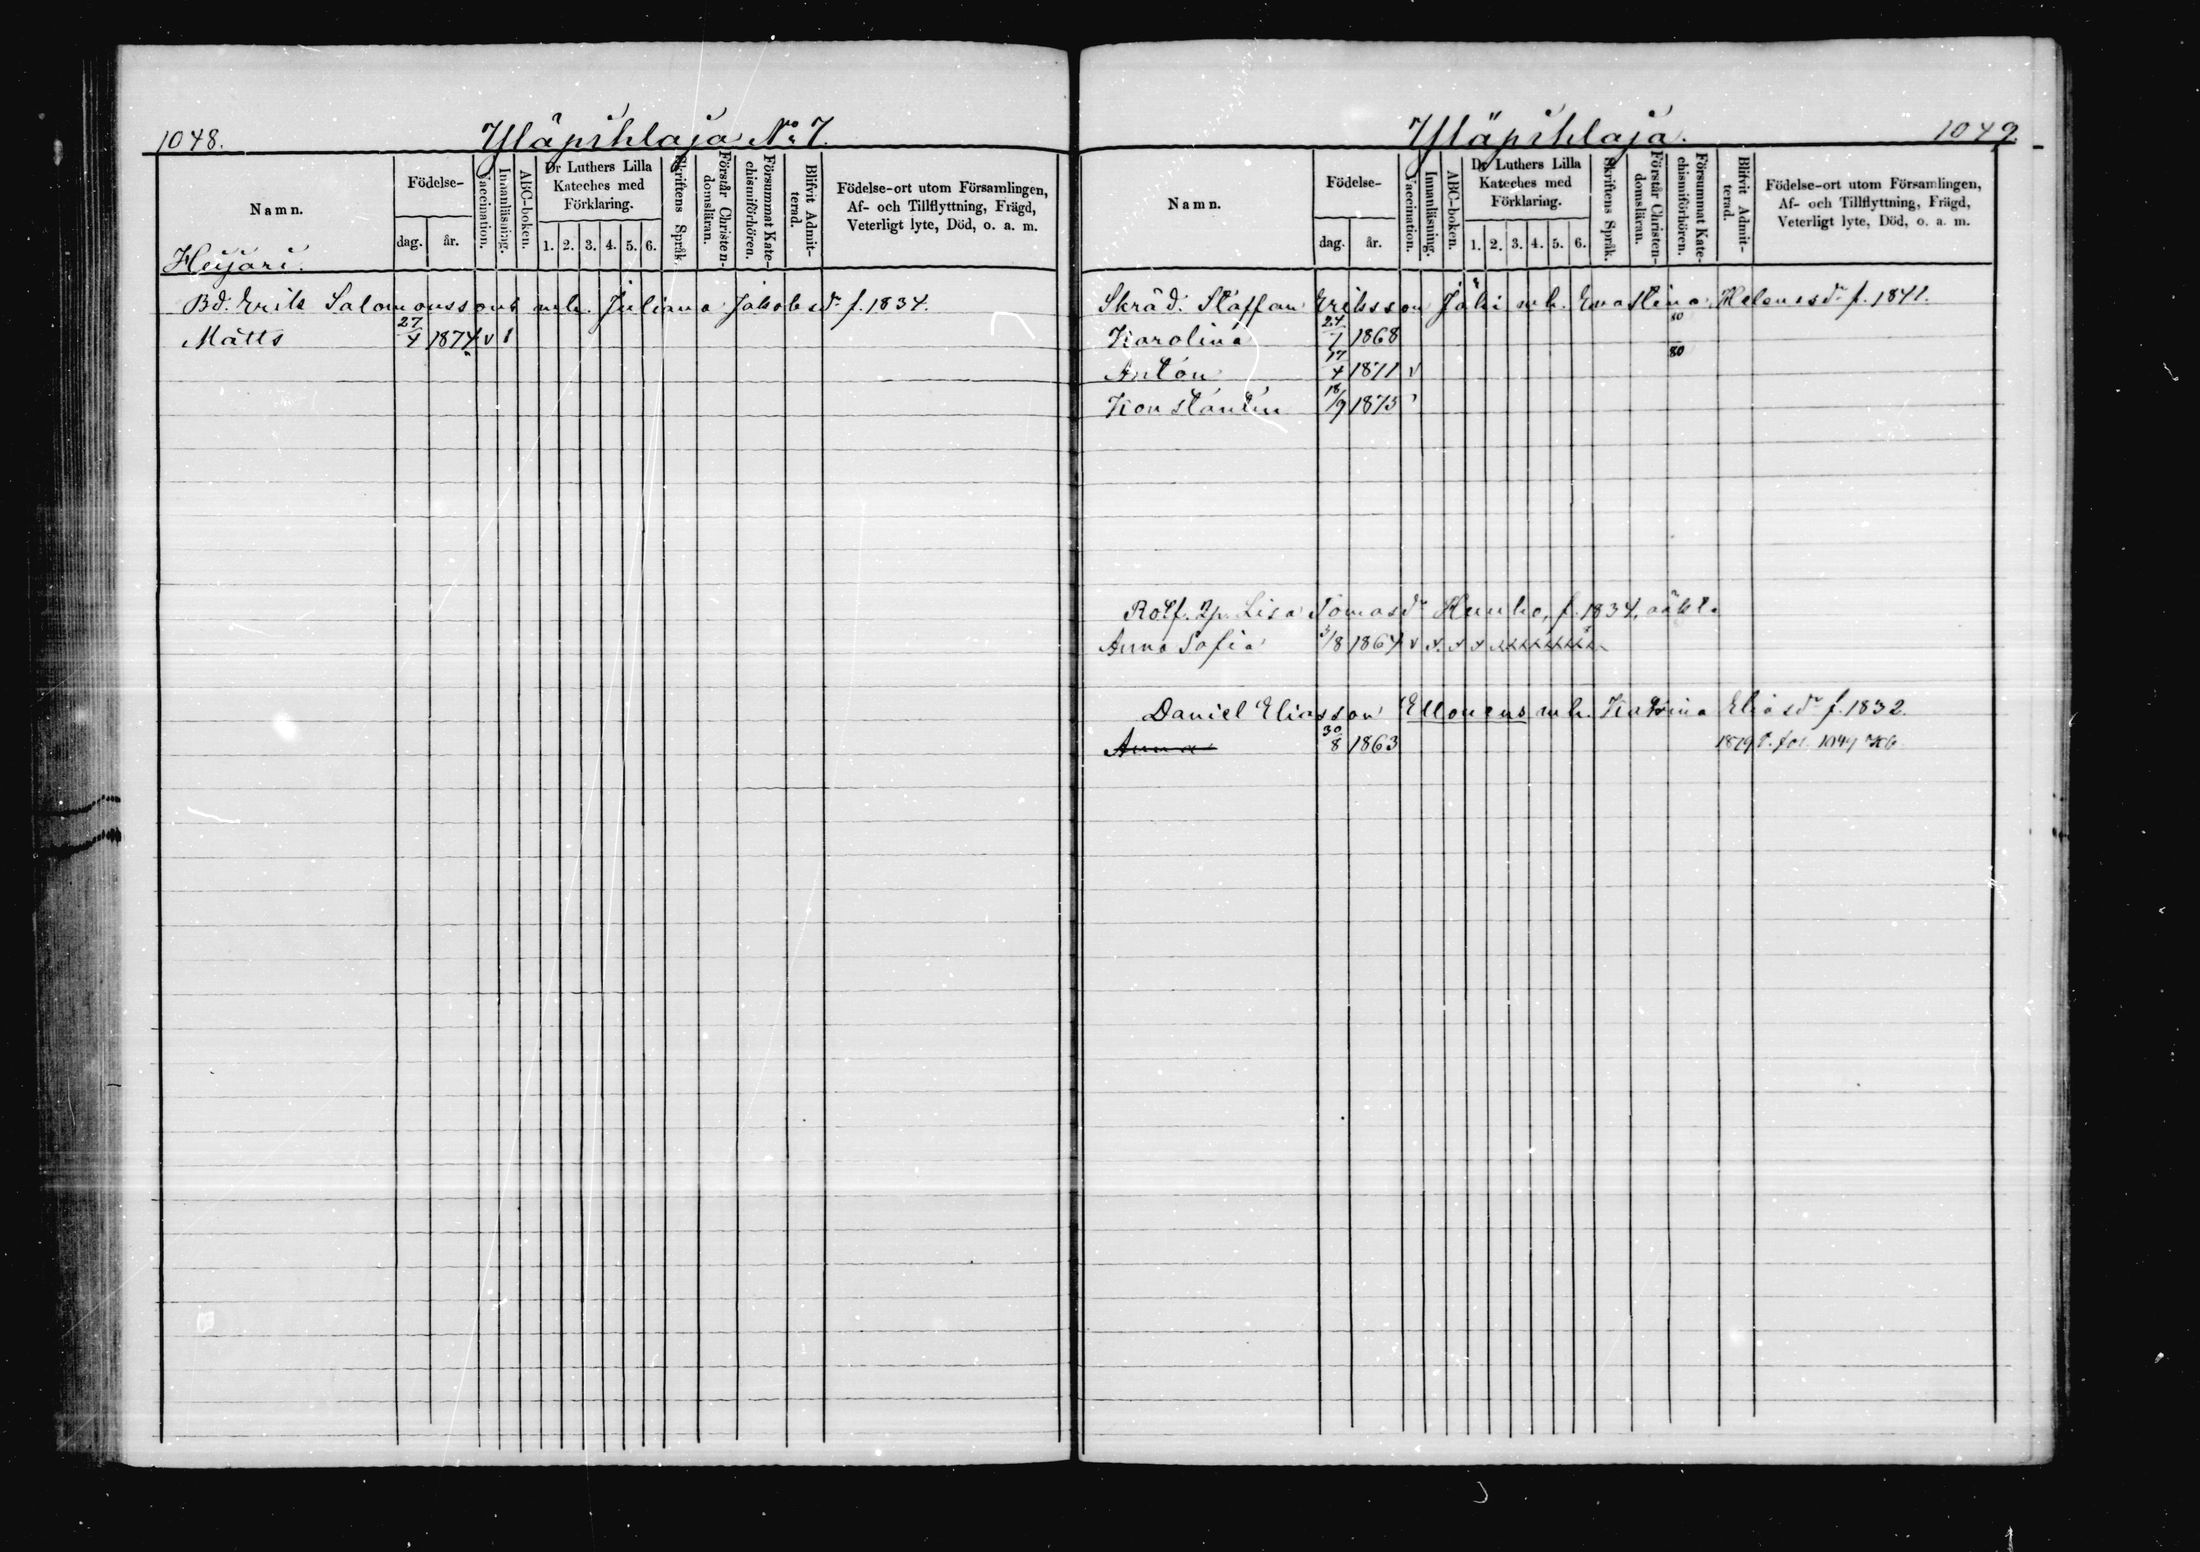 1048.
Yläpihlaja No 7.
Namn.
Födelse-
dag.
år.
Vaccination.
Innanläsning.
ABC-boken.
Dr Luthers Lilla
Kateches med
Förklaring.
1. 2. 3. 4. 5. 6.
Skriftens Språk.
Förstår Christen-
domsläran.
Försummat Kate-
chismiförhören.
Blifvit Admit-
terad.
Födelse-ort utom Församlingen,
Af- och Tillflyttning, Frägd,
Veterligt lyte, Död, o. a. m.
Heijari.
Bd. Erik Salomonssons mh. Juliana Jakobsdr f. 1834.
Matts 27/4 1874 v
Yläpihlaja.
1049
Namn.
Födelse-
dag.
år.
Vaccination.
Innanläsning.
ABC-boken.
Dr Luthers Lilla
Kateches med
Förklaring.
1. 2. 3. 4. 5. 6.
Skriftens Språk.
Förstår Christen-
domsläran.
Försummat Kate-
chismiförhören.
Blifvit Admit-
terad.
Födelse-ort utom Församlingen,
Af- och Tillflyttning, Frägd,
Veterligt lyte, Död, o. a. m.
Skräd. Staffan Eriksson mh. Eva Stina Helenesdr f. 1841.
Karolina 24/7 1868 80
Anton 17/4 1871 v 80
Konstantin 18/9 1875
Lisa Tomasdr f. 1834, oäkt.
Anna Sofia 3/8 1864 v x x x
Daniel Eliasson Ellonens mh. Katrina Eliasdr f. 1832.
Anna 30/8 1863 1879